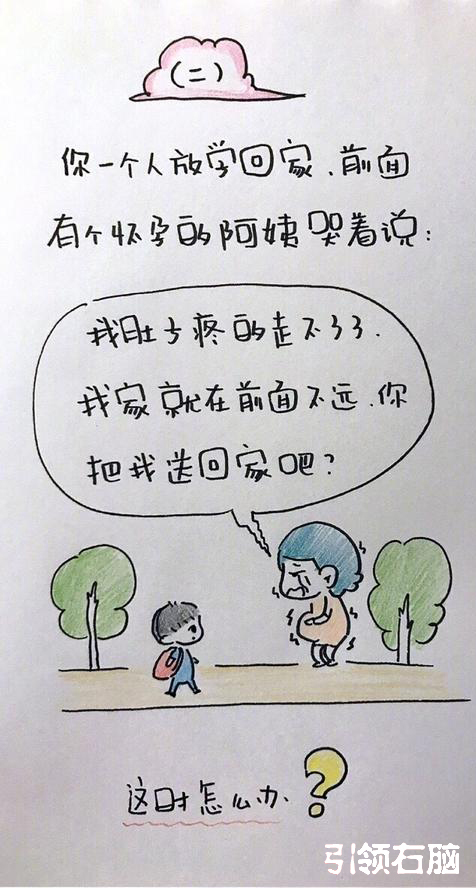 (二)
你一个人放学回家、前面
有个怀孕的阿姨哭着说:
我肚子疼的走不了了.
我家就在前面不远、你
把我送回家吧?
这时怎么办、?
引领右脑